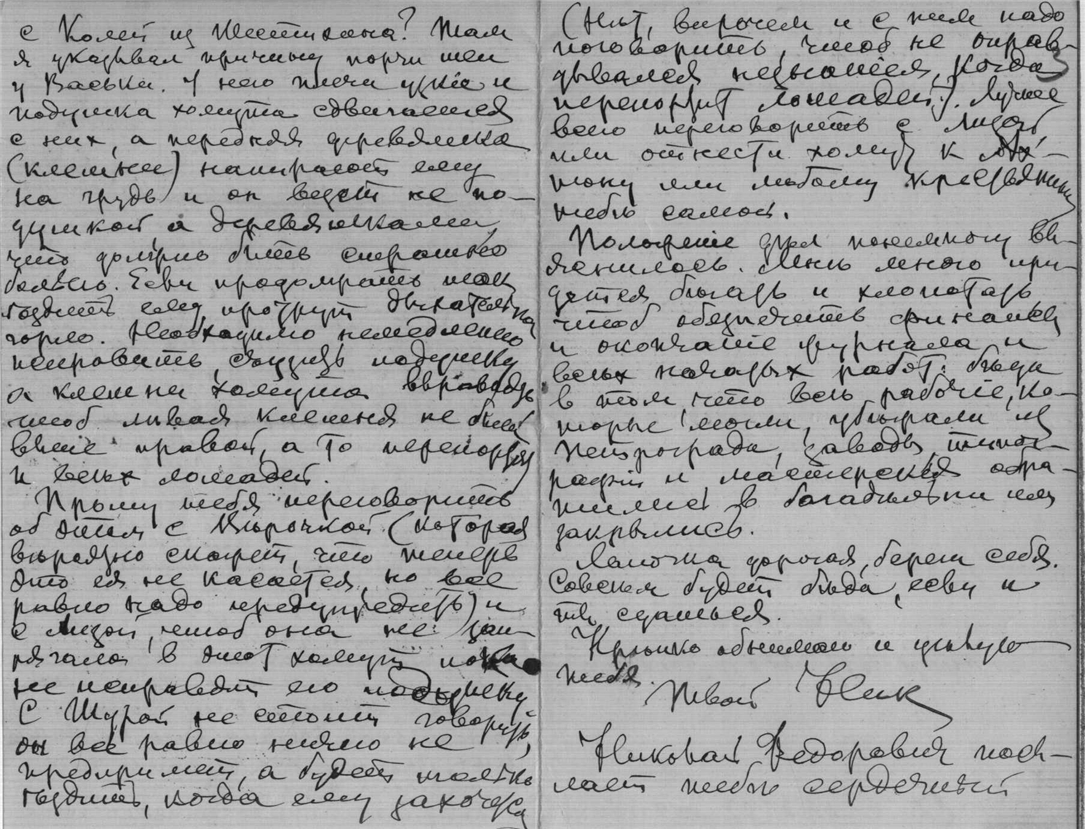 с Колей из Шествина? Там
я указывал причину порчи шеи
у Васьки. У него плечи узкие и
подушка хомута сдвигается
с них, а передняя деревяшка
(клешнее) напирает ему
на грудь и он везет не по-
душкой а деревяшками,
что должно быть страшно
больно. Если продолжать так
ездить ему, протрут дыхательное
горло. Необходимо немедленно
исправить, сузить подушку
а клешни хомута
чтоб левая клешня не была
выше правой, а то перепортят
и всех лошадей.
Прошу тебя переговорить
об этом с Юрочкой (которая
вероятно скажет, что теперь
это ея не касается, но все
равно надо предупредить) и
с Лизой, чтоб она не зап-
рягала в этот хомут пока
не исправят его подушку
С Шурой не стоит говорить,
он все равно ничего не
предпримет, а будет только
ездить, когда ему захочется
(Нет, впрочем и с ним надо
поговорить, чтоб не оправ-
дывался незнанием, когда
перепортит лошадей). Лучше
всего переговорить с Лизой,
или отнести хомут к
или любому крестьянину
тебе самой.
Положение дел понемногу вы-
яснилось. Мне много при-
дется бегать и хлопотать
чтоб обезпечить финансы
и окончание журнала и
всех начатых работ: беда
в том, что все рабочие, ко-
торые могли, убежали из
Петрограда, заводы, типог-
рафии и мастерския обра-
тились в богадельни или
закрылись.
Лапочка дорогая, береги себя.
Совсем будет беда, если и
ты сдашься.
Крепко обнимаю и целую
тебя.
Твой Ник
Николай Федорович посы-
лает тебе сердечный